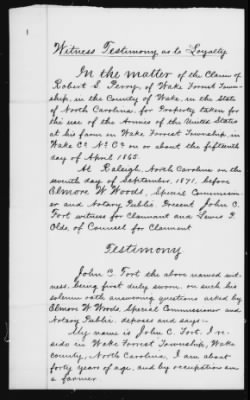 1
Witness Testimony as to Loyalty
In the matter of the Claim of
Robert S. Perry, of Wake Forrest Town-
ship, in the County of Wake, in the State
of North Carolina, for Property taken for
the use of the Armies of the United States
at his farm in Wake Forrest Township in
Wake Co. N. Co. on or about the fifteenth
day of April 1865.
At Raleigh, North Carolina on the
seventh day of September, 1871, before
Elmore W Woods, Special Commission-
er and Notary Public Present John C.
Fort witness for Claimant and Lewis P.
Olds, of Counsel for Claimant
Testimony
John C. Fort the above named wit-
ness, being first duly sworn, on such his
solemn oath answering questions asked by
Elmore W Woods, Special Commissioner and
Notary Public, deposes and says:-
My name is John C. Fort. I re-
side in Wake Forrest Township, Wake
county, North Carolina, I am about
forty years of age, and by occupation am
a farmer